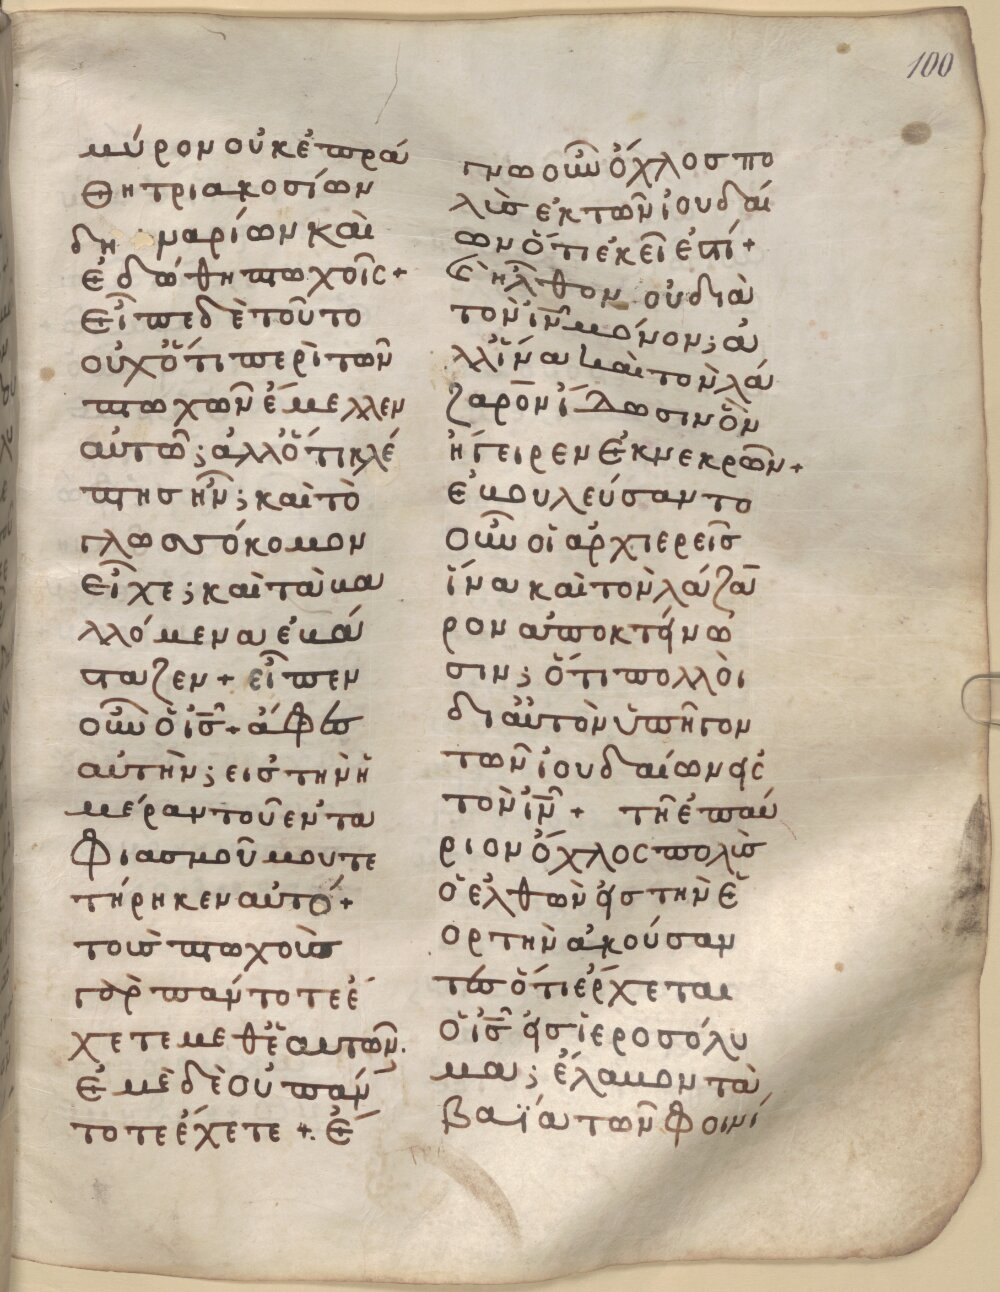 100
μύρον οὐκ ἐπρά
θη τριακοσίων
δηναρίων καὶ
ἐδώθη πτωχοῖς +
Εἶπε δὲ τοῦτο
οὐχ ὅτι περὶ τῶν
πτωχῶν ἔμελλεν
αὐτῶ; ἀλλ ὅτι κλέ
πτης ἦν; καὶ τὸ
γλωσσόκομον
εἶχε; καὶ τὰ βα
λλόμενα ἐβά
σταζεν + εἶπεν
οὖν ὁ ις + ἄφες
αὐτὴν; εις τὴν ἡ
μέραν τοῦ ἐντα
φιασμοῦ μου τε
τήρηκεν αὐτό +
τοὺς πτωχοὺς
γὰρ πάντοτε ἔ
χετε μεθ ἑαυτῶν.
ἐμὲ δὲ οὐ πάν
τοτε ἔχετε +. Ἔ
γνω οὖν ὄχλος πο
λὺς ἐκ τῶν ἰουδαί
ων ὅτι ἐκεῖ ἐστί +
Ἐῆλθον οὐ διὰ
τὸν ιν μόνον; ἀ
λλ ἵνα καὶ τὸν λά
ζαρον ἴδωσιν ὃν
ἤγειρεν ἐκ νεκρῶν +
ἐβουλεύσαντο
οὖν οἱ ἀρχιερεῖς
ἵνα καὶ τὸν λάζα
ρον ἀποκτείνω
σιν; ὅτι πολλοὶ
δι αὐτὸν ὑπῆγον
τῶν ἰουδαίων εἰς
τὸν ιν + τῆ ἐπαύ
ριον ὄχλος πολὺς
ὁ ἐλθὼν εἰς τὴν ἑ
ορτὴν ἀκούσαν
τες ὅτι ἔρχεται
ὁ ις εἰς ἱεροσόλυ
μα; ἔλαβον τὰ
βαΐα τῶν φοινί